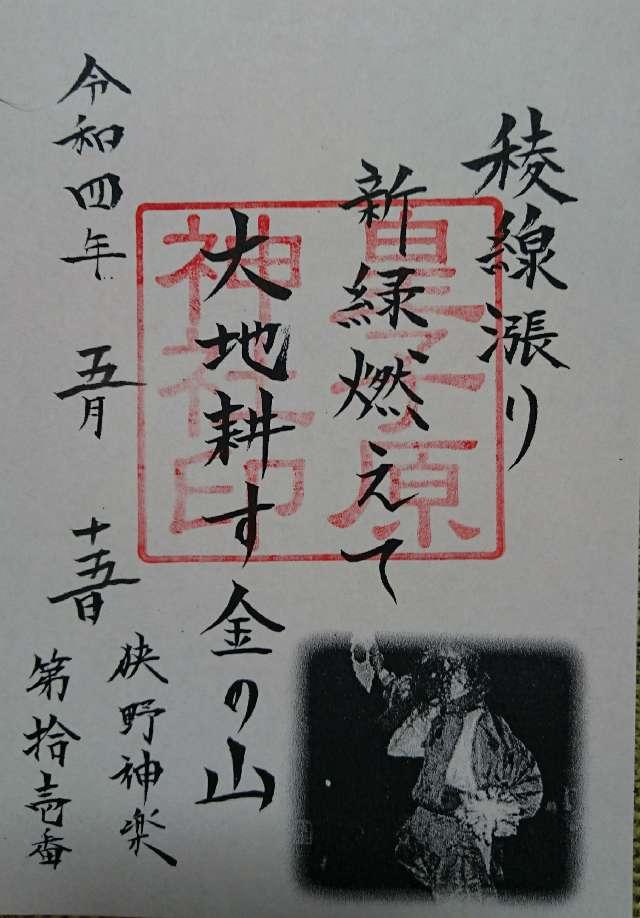 稜線漲り
新緑燃えて
大地耕す金の山
令和四年 五月 十五日
狭野神楽
第拾壱番
皇子原
神社印